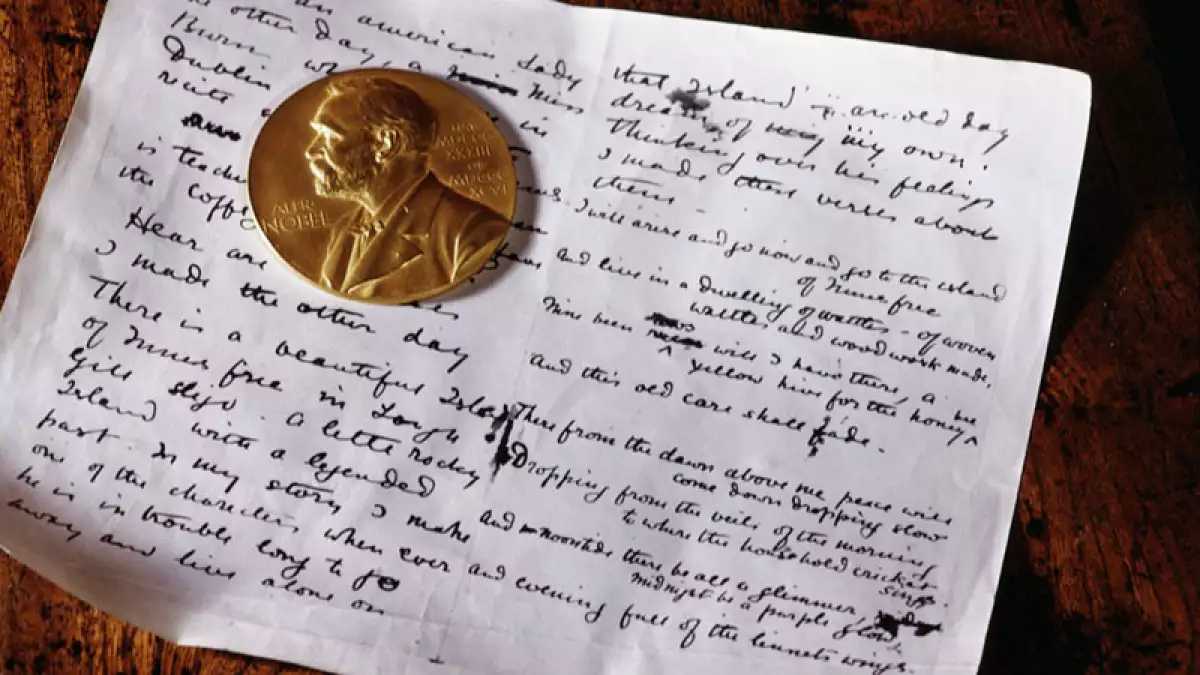 an american lady
the other day, a Miss
Burn
Dublin in
recite
is teach
the coffe
Hear are
I made the other day
There is a beautiful Island
of Innis free in Lough
Gill Sligo. A little rocky
Island with a legended
past. In my story I make
one of the characters when ever
he is in trouble long to go
away and live alone on
ALFR.
NOBEL
NAT.
MDCCC
XXXIII
OB.
MDCCC
XCVI
that Island - an old day
dream of my own.
Thinking over his feelings
I made these verses about
them -
I will arise and go now and go to the island
of Innis free
And live in a dwelling of wattles - of woven
wattles and wood work made,
Nine bean rows will I have there, a
yellow hive for the honey bee
And this old care shall fade.
There from the dawn above me peace will
come down dropping slow
Dropping from the veils of the morning
to where the household cricket
sings.
And noontide there be all a glimmer,
midnight be a purple glow
and evening full of the linnets wings.